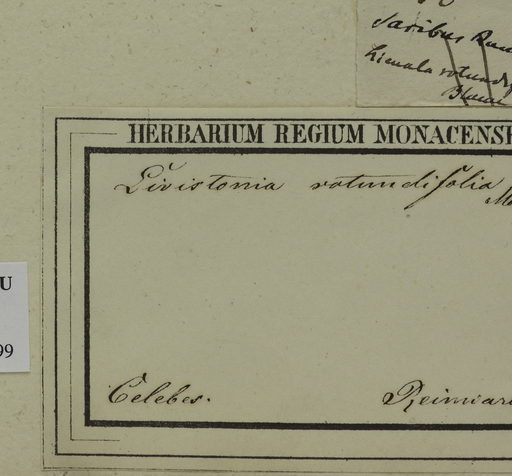 Saribus Rum
Licuala rotundif
Blume
HERBARIUM REGIUM MONACENS
Livistonia rotundifolia
Ma
U
99
Celebes. Reinwar